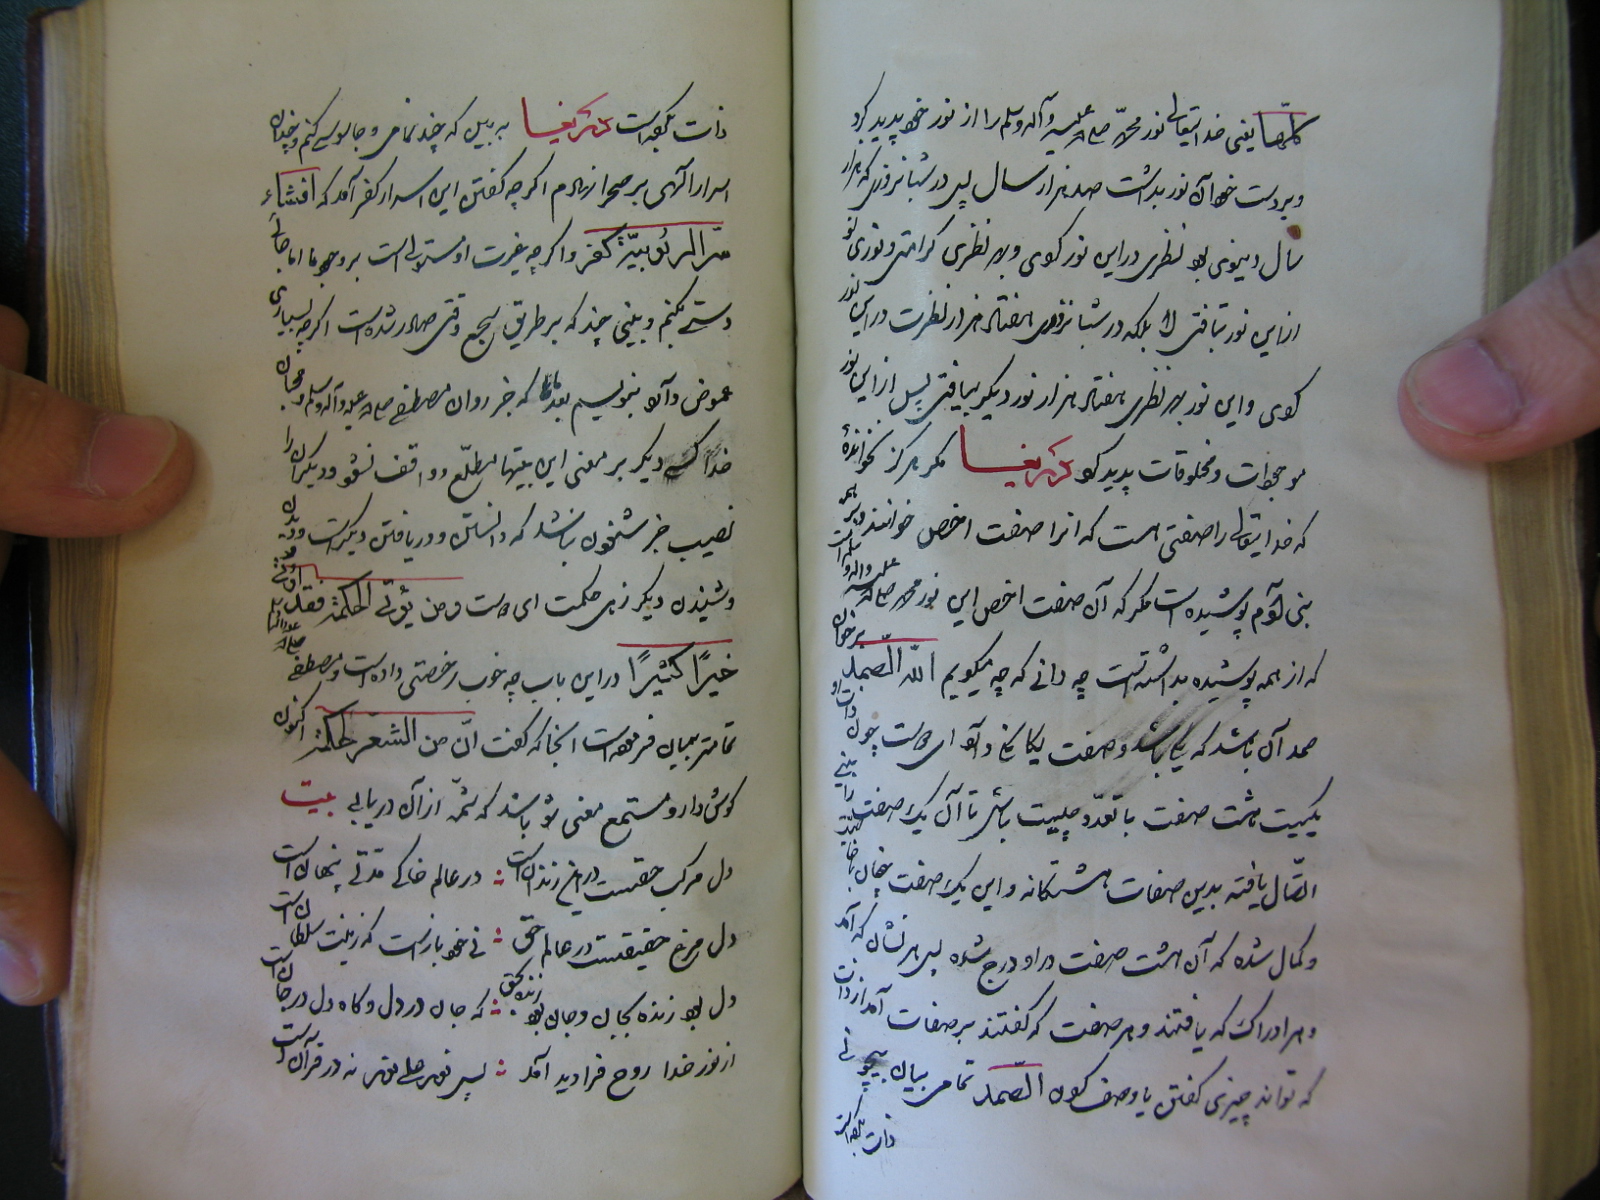 کلها یعنی خدایتعالی نور محمد صلی الله علیه و آله وسلم را از نور خود پدید کرد
و بر دست خود آن نور بداشت صد هزار سال پس در شبانروزی که هزار
سال دنیوی بود نظری در این نور کردی و بهر نظری کرامتی و نوری نو
از این نور بتافتی لا بلکه در شبانروزی هفتاد هزار نظرت در این نور
کردی و این نور بهر نظری هفتاد هزار نور دیگر بیافتی پس از این نور
موجودات و مخلوقات پدید کرد ای عزیز مگر هرگز نخوانده
که خدایتعالی را صفتی هست که آنرا صفت اخص خوانند و بر همه
بنی آدم پوشیده است مگر که آن صفت اخص این نور محمد صلی الله علیه و اله و سلم است
که از همه پوشیده بداشته است چه دانی که چه میگویم الله الصمد بر خوان
صمد آن باشد که یکی باشد و صفت یکایکی ذات او چون
یکیست هشت صفت با تعدد چیست باش تا آن یک صفت را بینی
اتصال یافته بدین صفات هشتگانه و این یک صفت چنان
و کمال شده که آن هشت صفت در او درج شده پس هر نشان که آمد
و هر ادراک که یافتند و هر صفت که گفتند بر صفات آمد از ذات
که تواند چیزی گفتن یا وصف کردن الصمد تمامی بیان بیچونی
ذات بکرده است
ذات بکرده است ای عزیز به بین که چند نمامی و جاسوسی کنم و چندان
اسرار الهی بر صحرا نهادم اگر چه گفتن این اسرار کفر آمد که افشاء
سر الربوبیة کفر و اگر چه غیرت او مستولی است بر وجود ما اما حالی
دستی بکنم و بیتی چند که بر طریق سجع وقتی صادر شده است اگر چه بسیاری
غموض دارد بنویسم بعد ما که جز روان مصطفی صلی الله علیه و آله وسلم و محبان
خدا کسی دیگر بر معنی این بیتها مطلع و واقف نشود و دیگران را
نصیب جز شنودن نباشد که دانستن و دریافتن دیگر است و دیدن
و شنیدن دیگر زهی حکمت ای دوست و من یؤتی الحکمة فقد اوتی
خیرًا کثیرًا در این باب چه خوب رخصتی داده است و مصطفی صلی الله علیه و اله و سلم
تمامتر بیان فرموده است آنجا که گفت ان من الشعر لحکمة اکنون
گوش دار و مستمع معنی شو باشد که شمه از آن دریابی بیت
دل مرکب حقست در این زندان است ؛ در عالم خاک مدتی پنهان است
دل مرغ حقیقتست در عالم حق ؛ نی خود باز است که زینت سلطان است
دل بود زنده بجان و جان بود زنده بحق ؛ که جان در دل و گاه دل در جان است
از نور خدا روح فرا دید آمد ؛ پس نور علی نور نه در قرآن است